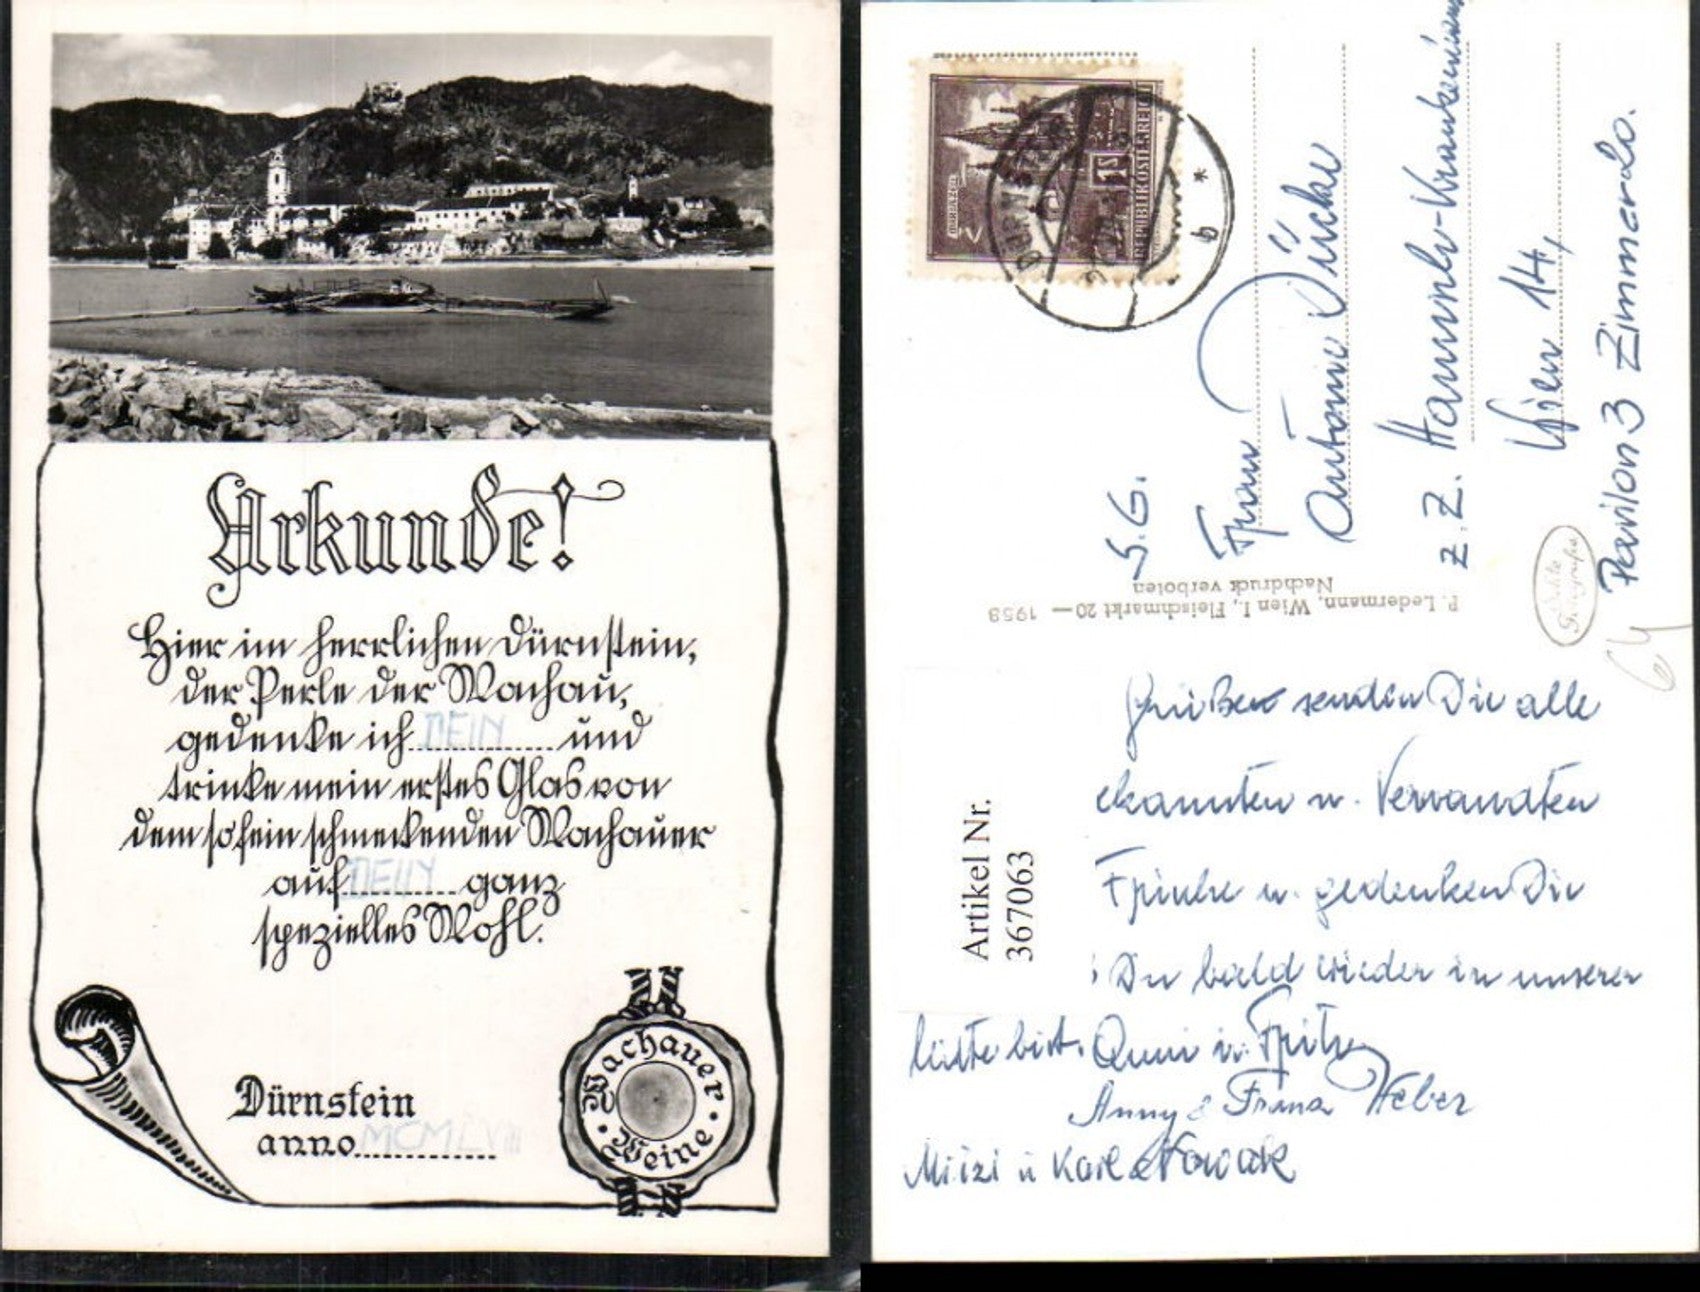 Urkunde!
Hier im herrlichen Dürnstein,
der Perle der Wachau,
gedenke ich DEIN und
trinke mein erstes Glas von
dem so fein schmeckenden Wachauer
auf DEIN ganz
spezielles Wohl.
Dürnstein
anno MCMLVIII
Wachauer
Weine
REPUBLIK ÖSTERREICH
S.G.
Frau
Antonie
z. Z. Hanusch-Krankenhaus
Wien 14,
Pavillon 3 Zimmer 20.
P. Ledermann, Wien I., Fleischmarkt 20 — 1958
Nachdruck verboten
Echte
Fotografie
64
Artikel Nr.
367063
Grüße senden Dir alle
ekannten u. Verwandten
u. gedenken Die
Du bald wieder in unserer
Mitte bist. u. Fritz
Anny & Franz Weber
Mitzi u Karl Nowak